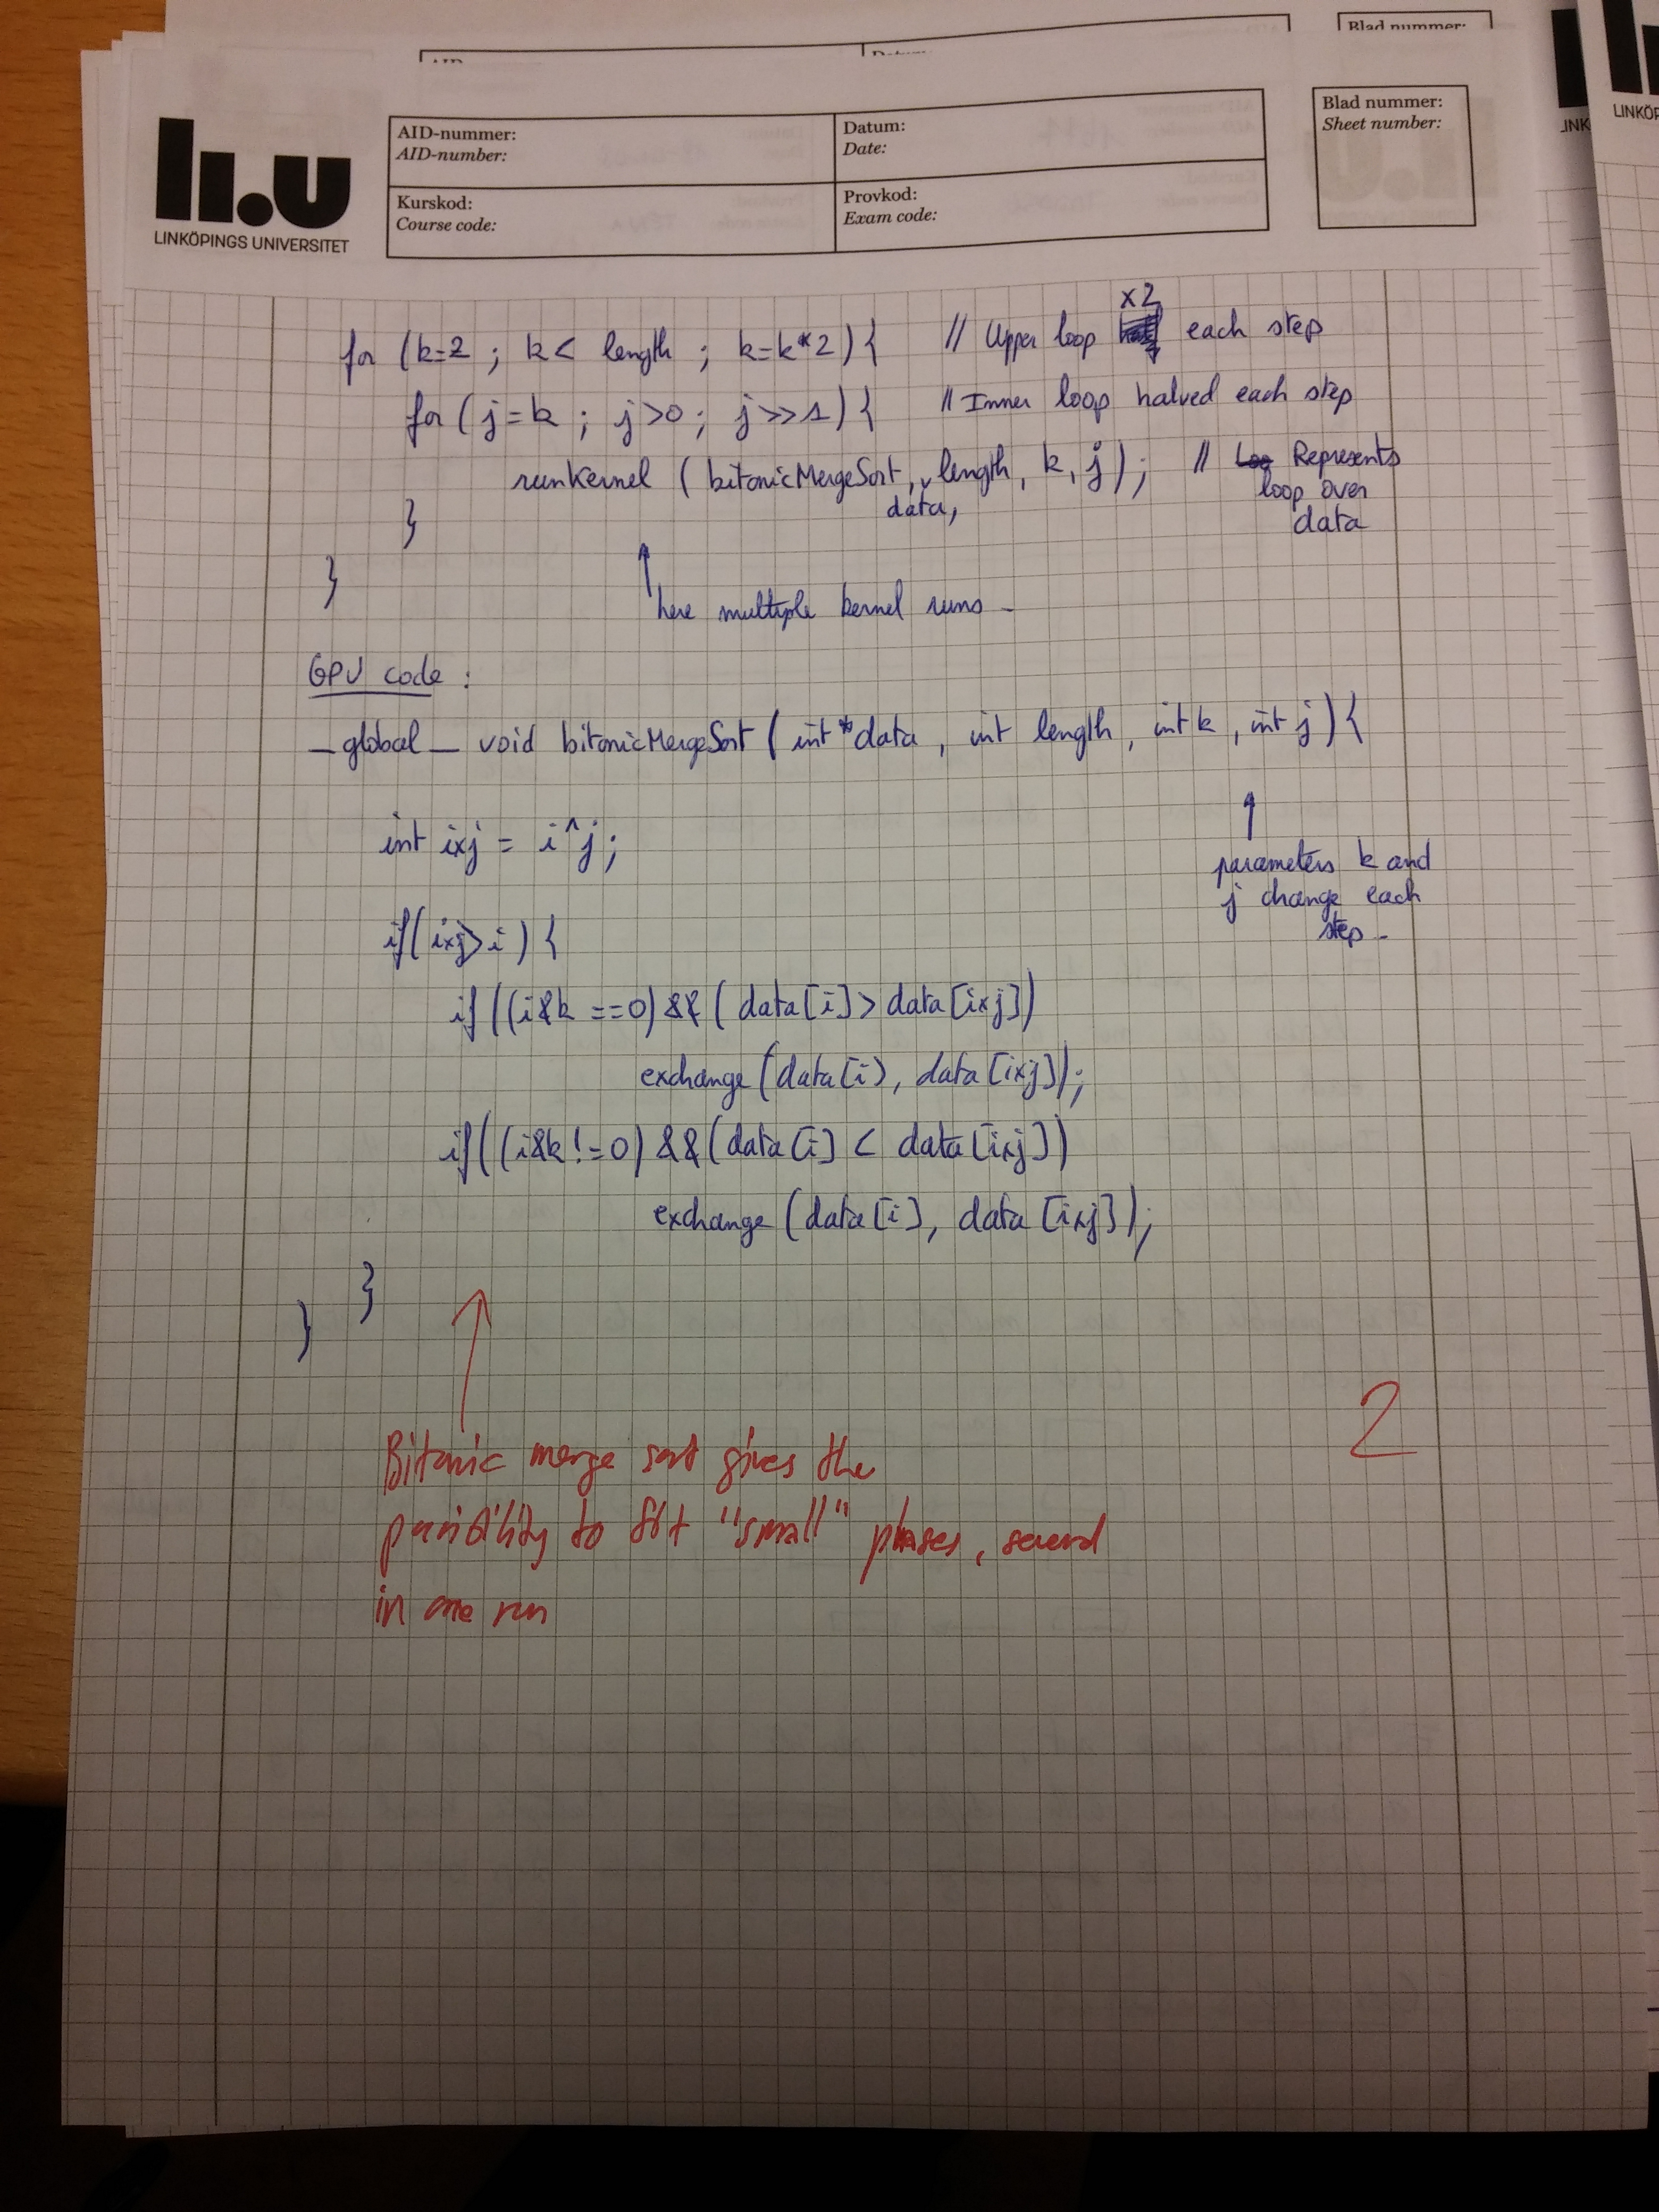 Blad nummer:
AID-nummer:
AID-number:
Datum:
Date:
Blad nummer:
Sheet number:
Kurskod:
Course code:
Provkod:
Exam code:
li.u
LINKÖPINGS UNIVERSITET
LINK
LINKÖP
x2
for (k=2 ; k< length ; k=k*2){ // Upper loop each step
for (j=k ; j>0 ; j>>1){ // Inner loop halved each step
runKernel (bitonicMergeSort, length, k, j); // Represents
data,
loop over
data
}
}
here multiple kernel runs -
GPU code :
_global_ void bitonicMergeSort ( int *data , int length , int k , int j){
int ixj = i^j;
parameters k and
j change each
step -
if(ixj>i) {
if ((i&k ==0) && ( data[i] > data[ixj])
exchange (data[i], data[ixj]);
if((i&k !=0) && (data[i] < data[ixj])
exchange (data[i], data[ixj]);
}
}
2
Bitonic merge sort gives the
possibility to fit "small" phases, several
in one run